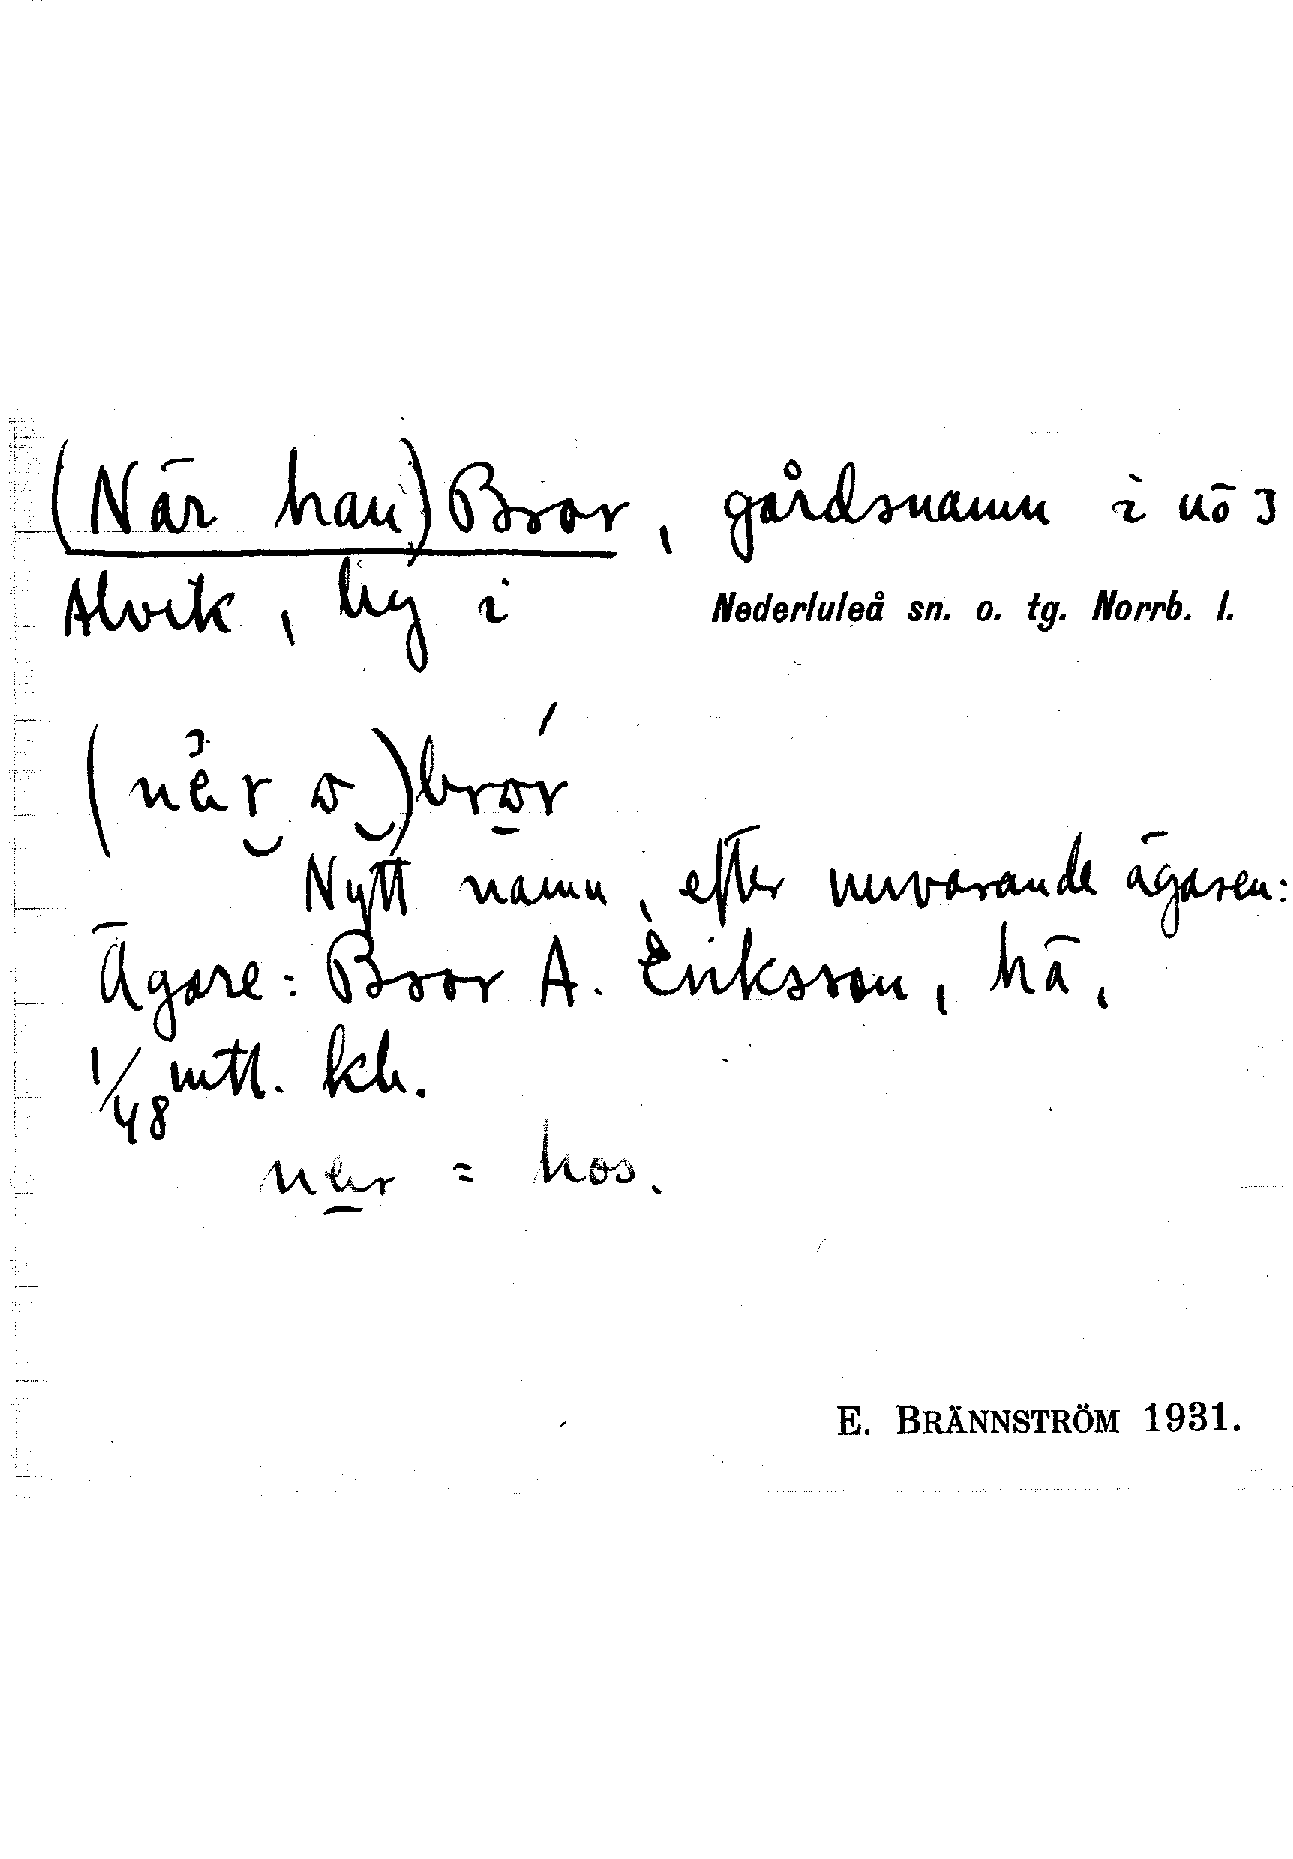 (När han) Bror, gårdsnamn i nö 3
Alvik, by i Nederluleå sn. o. tg. Norrb. l.
bror
Nytt namn, efter nuvarande ägaren:
Ägare: Bror A. Eriksson, hä,
1/48 mtl. kh.
när = hos.
E. BRÄNNSTRÖM 1931.